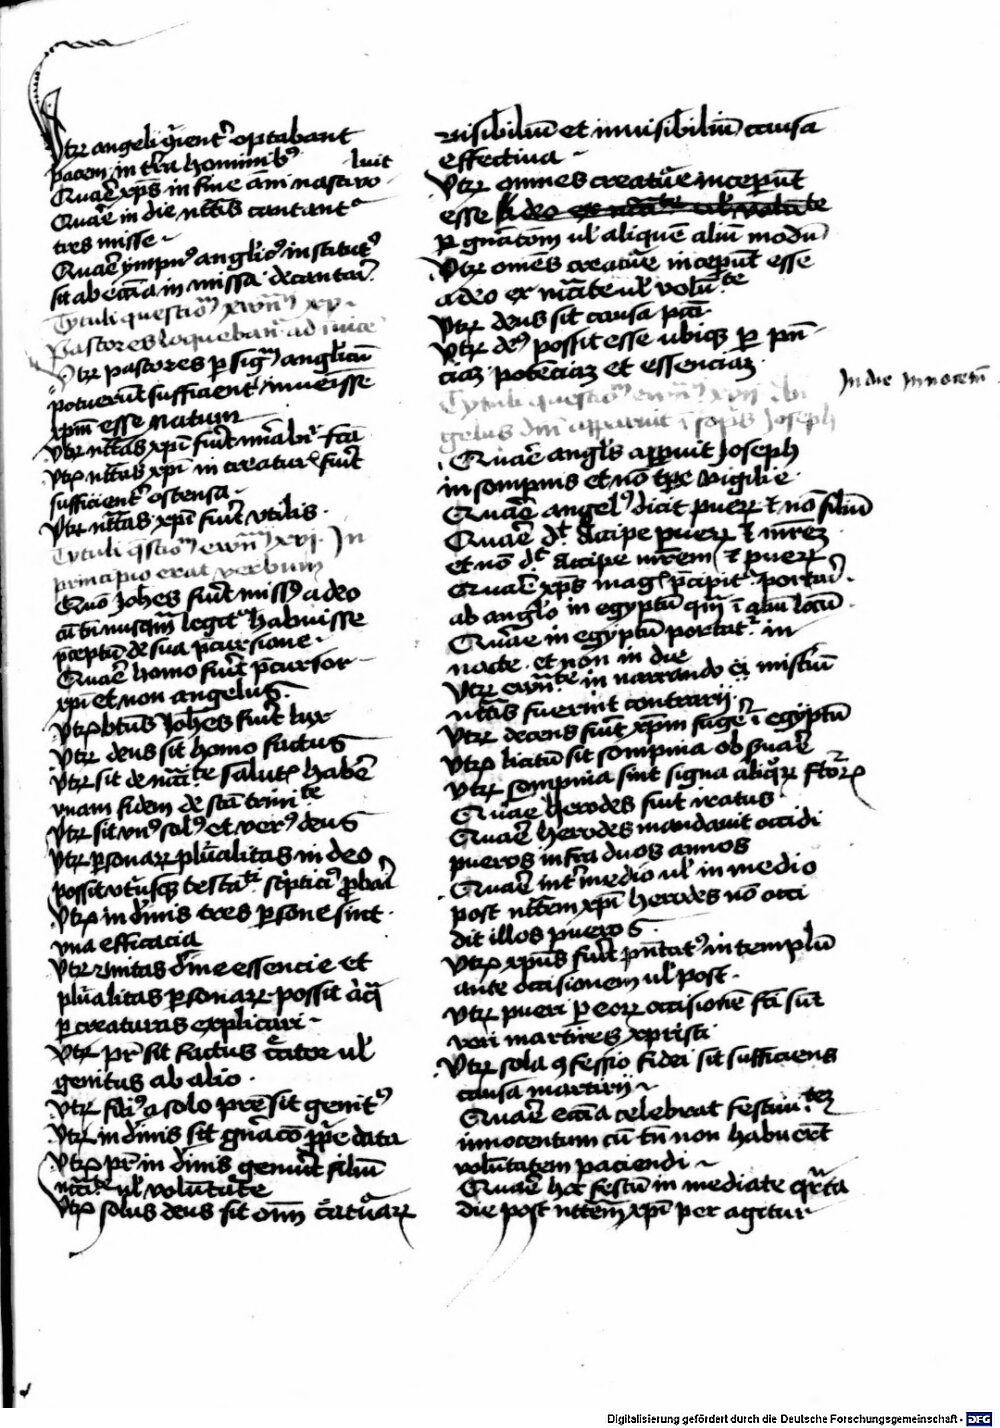 Vtrum angeli querent optabant
pacem in terra hominibus
Quare xps in fine anni nasci vo
luit
Quare in die nttis cantantur
tres misse
Quare ympnus anglicus institutus
sit ab eccia in missa decantari
Tytuli questionum ewangeliorum xv
Pastores loquebantur ad inuice
Vtrum pastores per signum anglicum
potuerunt sufficienter inuenisse
xpm esse natum
Vtrum nttas xpi fuerit mirabiliter facta
Vtrum nttas xpi in creaturis fuerit
sufficienter ostensa
Vtrum nttas xpi fuerit vtilis
Tytuli questionum ewangelii xvi In
principio erat verbum
Quomodo Johes fuerit missus a deo
cum tamen nusquam legitur habuisse
preceptum de sua precursione
Quare homo fuerit precursor
xpi et non angelus
Vtrum beatus Johes fuerit lux
Vtrum deus sit homo factus
Vtrum sit de necessitate salutis habere
vnam fidem de sancta trinitate
Vtrum sit vnus solus et verus deus
Vtrum personarum pluralitas in deo
possit vtriusque testamenti scripturis probari
Vtrum in diuinis tres persone sint
vna efficacia
Vtrum vnitas diuine essencie et
pluralitas personarum possit
per creaturas explicari
Vtrum pater sit factus creator vel
genitus ab alio
Vtrum filius a solo patre sit genitus
Vtrum in diuinis sit generacio proprie data
Vtrum pater in diuinis genuerit filium
necessitate vel voluntate
Vtrum solus deus sit omnium creaturarum
visibilium et inuisibilium causa
effectiua
Vtrum omnes creature inceperunt
esse a deo
per generationem vel aliquem alium modum
Vtrum omnes creature inceperunt esse
a deo ex necessitate vel voluntate
Vtrum deus sit causa peccati
Vtrum deus possit esse ubique per presen
ciam potenciam et essenciam
Tytuli questionum ewangelii xvii An
gelus domini apparuit in sopnis Joseph
In die Innocentum
Quare angelus apparuit Joseph
in sompnis et non tempore vigilie
Quare angelus dicit puerum et non filium
Quare dicit Accipe puerum et matrem
et non dicit Accipe matrem et puerum
Quare xps magis precipitur portari
ab angelo in egyptum quam in alium locum
Quare in egyptum portatur in
nocte et non in die
Vtrum ewangeliste in narrando xpi misterium
nttis fuerint contrarii
Vtrum decens fuerit xpm fugere in egyptum
Vtrum licitum sit sompnia obseruare
Vtrum sompnia sint signa aliquorum futurorum
Quare herodes fuit iratus
Quare herodes mandauit occidi
pueros infra duos annos
Quare inter medio vel in medio
post nttem xpi herodes non occi
dit illos pueros
Vtrum xpus fuerit presentatus in templum
ante occisionem vel post
Vtrum pueri per eorum occisionem facti sunt
veri martires xpristi
Vtrum sola confessio fidei sit sufficiens
causa martirii
Quare eccia celebrat festiuitatem
innocentum cum tamen non habuerunt
voluntatem paciendi
Quare hoc festum in mediate quarta
die post nttem xpi per agitur
Digitalisierung gefördert durch die Deutsche Forschungsgemeinschaft - DFG